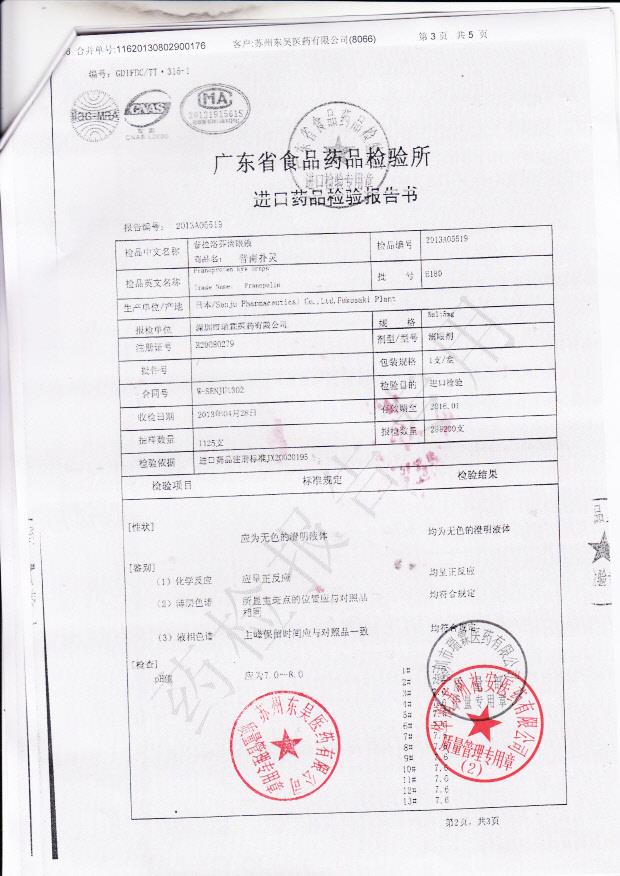 合并单号:11620130802900176 客户:苏州东吴医药有限公司(8066) 第 3 页 共 5 页
编号: GDIFDC/TT·316-1
CNAS
MA
广东省食品药品检验所
进口检验专用章
广东省食品药品检验所
进口药品检验报告书
报告编号: 2013A05519
检品中文名称 普拉洛芬滴眼液 检品编号 2013A05519
商品名: 普南扑灵
检品英文名称 Pranoprofen Eye Drops 批 号 E180
Trade Name: Pranopulin
生产单位/产地 日本/Senju Pharmaceutical Co.,Ltd,Fukusaki Plant
报检单位 深圳市瑞霖医药有限公司 规 格 5ml:5mg
注册证号 H20080279 剂型/型号 滴眼剂
批件号 包装规格 1支/盒
合同号 W-SENJU1302 检验目的 进口检验
收检日期 2013年04月28日 有效期至 2016.01
抽样数量 1125支 报检数量
检验依据 进口药品注册标准JX20020195
检验项目 标准规定 检验结果
[性状] 应为无色的澄明液体 均为无色的澄明液体
[鉴别]
(1) 化学反应 应呈正反应 均呈正反应
(2) 薄层色谱 所显主斑点的位置应与对照品 均符合规定
相同
(3) 液相色谱 主峰保留时间应与对照品一致 均符合规定
[检查]
pH值 应为7.0~8.0 1#
2#
3#
4#
5#
6#
7# 7.
8#
9#
10# 7.6
11# 7.6
12# 7.6
13# 7.6
药检报告专用
苏州东吴医药有限公司
质量管理专用章
深圳市瑞霖医药有限公司
质量专用章
质量管理专用章
(2)
第2页, 共3页